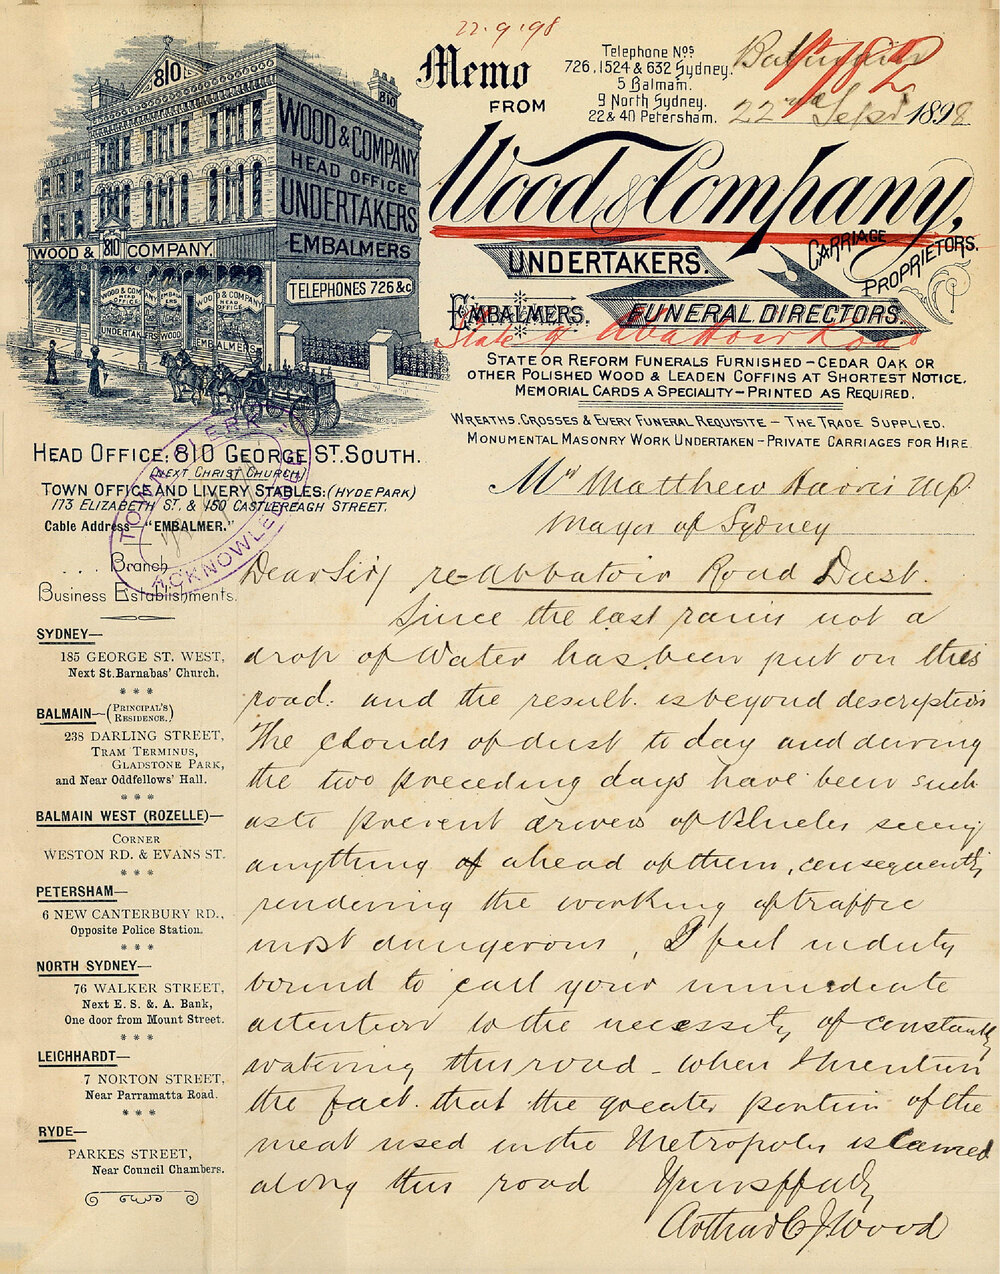 22.9.98
Memo
FROM
Telephone Nos
726, 1524 & 632 Sydney.
5 Balmain.
9 North Sydney.
22 & 40 Petersham.
Balmain
22nd Sept 1898
Wood & Company,
UNDERTAKERS.
CARRIAGE PROPRIETORS.
EMBALMERS.
FUNERAL DIRECTORS.
State of Abattoir Road
STATE OR REFORM FUNERALS FURNISHED – CEDAR OAK OR
OTHER POLISHED WOOD & LEADEN COFFINS AT SHORTEST NOTICE.
MEMORIAL CARDS A SPECIALITY – PRINTED AS REQUIRED.
WREATHS, CROSSES & EVERY FUNERAL REQUISITE – THE TRADE SUPPLIED.
MONUMENTAL MASONRY WORK UNDERTAKEN – PRIVATE CARRIAGES FOR HIRE.
810
810
WOOD & COMPANY
HEAD OFFICE
UNDERTAKERS
EMBALMERS
TELEPHONES 726 &c
WOOD & 810 COMPANY.
WOOD & COMPANY
HEAD OFFICE
UNDERTAKERS
WOOD
WOOD & COMPANY
HEAD OFFICE
EMBALMERS
HEAD OFFICE, 810 GEORGE ST. SOUTH.
(NEXT CHRIST CHURCH)
TOWN OFFICE AND LIVERY STABLES: (HYDE PARK)
173 ELIZABETH ST. & 150 CASTLEREAGH STREET.
Cable Address – "EMBALMER."
TOWN CLERK
ACKNOWLEDGED
... Branch
Business Establishments.
SYDNEY—
185 GEORGE ST. WEST,
Next St. Barnabas' Church.
BALMAIN—(PRINCIPAL'S RESIDENCE.)
238 DARLING STREET,
TRAM TERMINUS,
GLADSTONE PARK,
and Near Oddfellows' Hall.
BALMAIN WEST (ROZELLE)—
CORNER
WESTON RD. & EVANS ST.
PETERSHAM—
6 NEW CANTERBURY RD.,
Opposite Police Station.
NORTH SYDNEY—
76 WALKER STREET,
Next E. S. & A. Bank,
One door from Mount Street.
LEICHHARDT—
7 NORTON STREET,
Near Parramatta Road.
RYDE—
PARKES STREET,
Near Council Chambers.
Mr Matthew Harris MP
Mayor of Sydney
Dear Sir/ re-Abbatoir Road Dust.
Since the last rains not a
drop of Water has been put on this
road: and the result is beyond description
The Clouds of dust to day and during
the two preceding days have been such
as to prevent drivers of Vehicles seeing
anything of ahead of them, consequently
rendering the working of traffic
most dangerous, I feel in duty
bound to call your immediate
attention to the necessity of constantly
watering this road – when I mention
the fact that the greater portion of the
meat used in the Metropolis is carried
along this road
Yours ffully
Arthur C J Wood